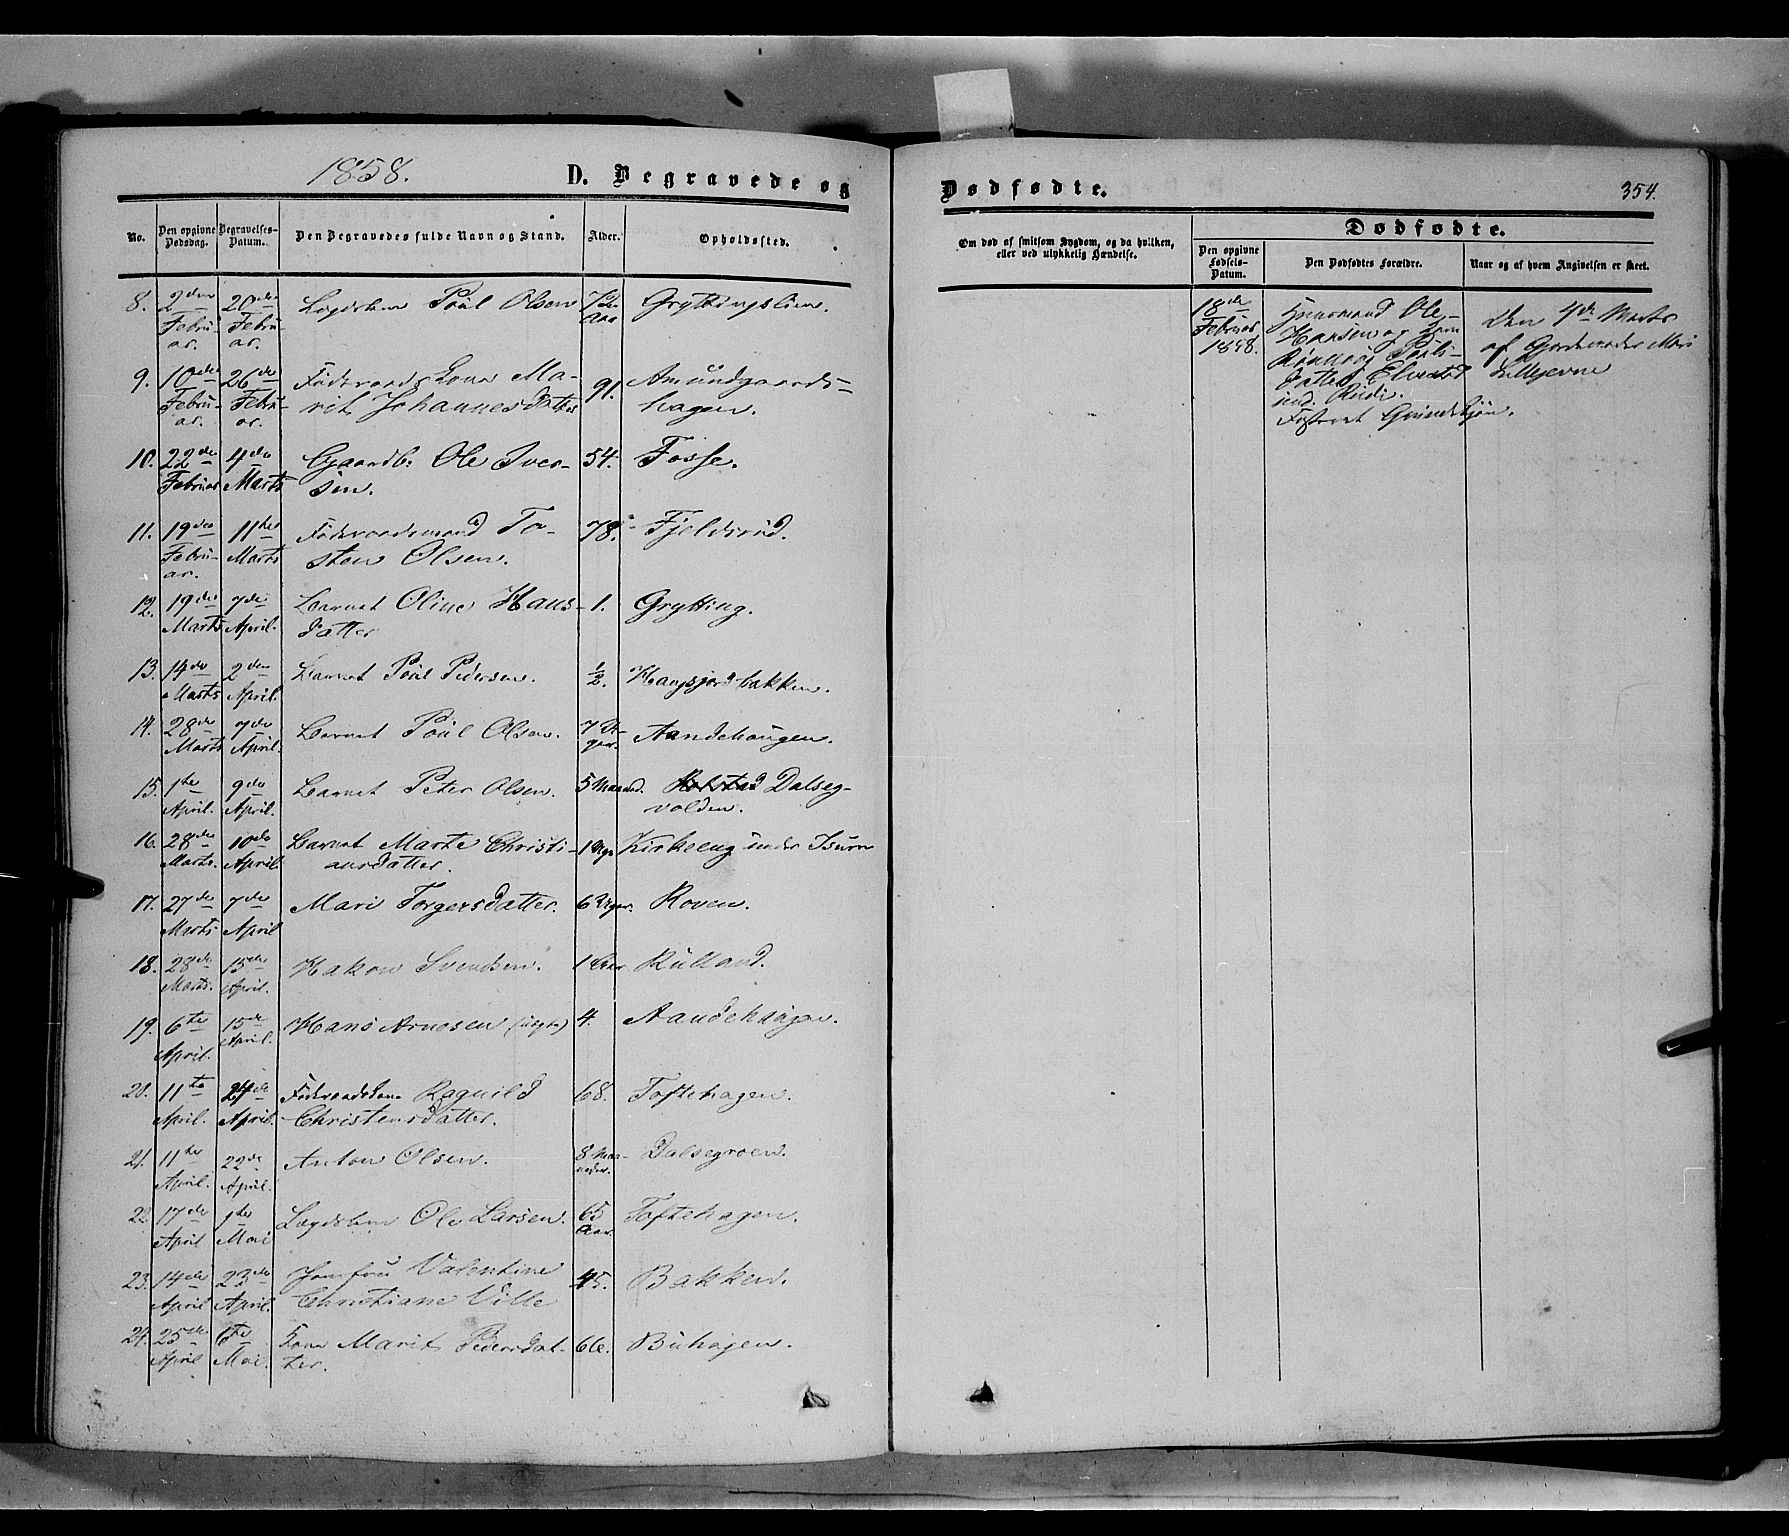 1858.
D. Begravede og
Dødfødte.
354.
No.
Den opgivne Dødsdag.
Begravelses-Datum.
Den Begravedes fulde Navn og Stand.
Alder.
Opholdssted.
Om død af smitsom Sygdom, og da hvilken, eller ved ulykkelig Hændelse.
Dødfødte.
Den opgivne Fødsels-Datum.
Den Dødfødtes Forældre.
Naar og af hvem Angivelsen er skeet.
8. 2den Februar. 20de Februar. Lægdslem Poul Olsen Aar Gryttingslien.
9. 10de Februar. 26de Februar. Føderaads Kona Ma-
rit Johannesdatter 91. Amundgaards-
hagen.
10. 22de Februar 4de Marts Gaardb: Ole Iver-
sen. 54. Fosse.
11. 19de Februar. 11te Marts Føderaadsmand To-
sten Olsen. 78. Fjeldsrud.
12. 19de Marts 7de April. Barnet Oline Hans-
datter 1. Grytting.
13. 14de Marts 2den April. Barnet Poul Pedersen. ½. Haugsjordbakken.
14. 28de Marts 7de April. Barnet Poul Olsen. 7 Uger. Aandehaugen.
15. 1te April. 9de April. Barnet Peter Olsen. 5 Maaned. Dalseg-
volden.
16. 28de Marts. 10de April. Barnet Marte Christi-
ansdatter. 1 Uge Kirkeeng under Isum
17. 27de Marts 7de April Mari Torgersdatter. 6 Uger. Roven.
18. 28de Marts. 15de April. Hakon Svendsen. 1 Aar Rulland.
19. 6te April. 15de April. Hans Arnesen (uægte) 4. Aandehaugen.
20. 11te April. 24de April. Føderaadskone Ragnild
Christensdatter. 68. Toftehagen.
21. 11te April. 22de April. Anton Olsen. 8 Maaneder. Dalsegroen.
22. 17de April 1te Mai Lægdslem Ole Larsen. 65 Aar. Toftehagen.
23. 14de April 23de April. Jomfru Valentine
Christiane Ville 45. Bakken.
24. 25de April 6te Mai. Kone Marit Pedersdat-
ter. 66. Buhagen.
18de Februar 1858.
Huusmand Ole
Hansen og Kone
Rønnaug Pouls-
datter Elvestad
ind. Rudi.
Den 4de Marts
af